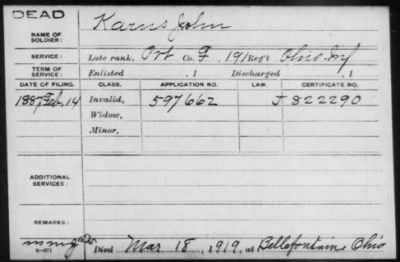 DEAD
NAME OF SOLDIER: Karns John
SERVICE: Late rank, Pvt Co. F, 191 Reg't Ohio Inf
TERM OF SERVICE: Enlisted , 1 Discharged , 1
DATE OF FILING. CLASS. APPLICATION NO. LAW. CERTIFICATE NO.
1887 Feb, 14 Invalid, 597662 J 822290
Widow,
Minor,
ADDITIONAL SERVICES:
REMARKS:
Died Mar 18, 1919, at Bellefontaine Ohio